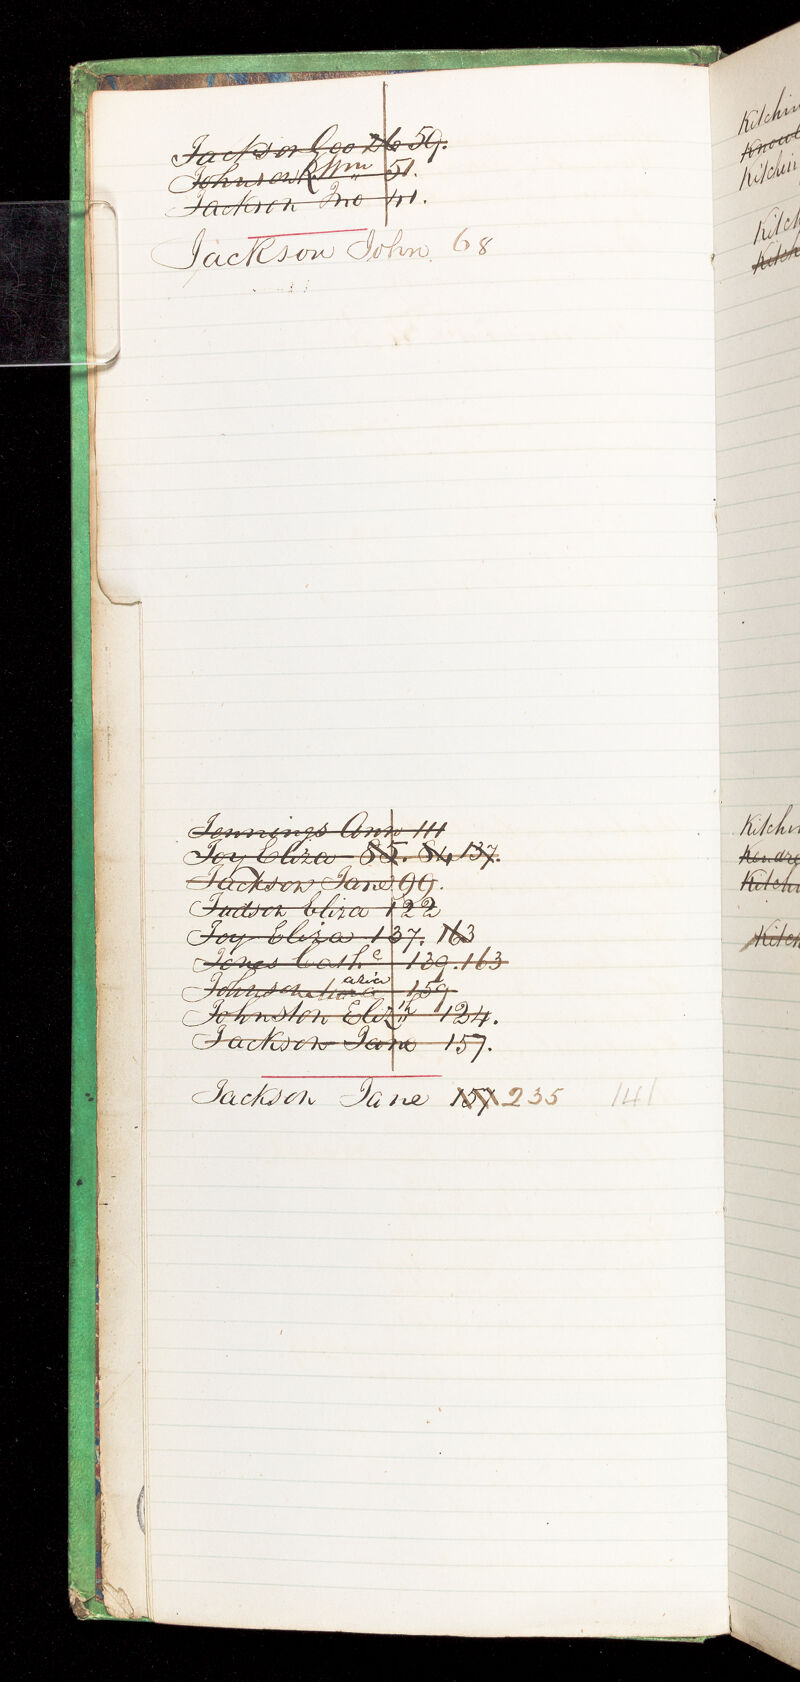 Jackson Geo 26 59.
Johnson R. Wm 51.
Jackson Jno 41.
Jackson John. 68
Jennings Ann 111
Joy Eliza 85. 84 137.
Jackson Jane 99.
Judson Eliza 122
Joy Eliza 137. 163
Jones Cathe 139. 163
Johnson alice 159
Johnston Elizth 124.
Jackson Jane 157.
Jackson Jane 157 235 141
Kitchin
Kitchin
Kitch
Kitch
Kitchin
Kitchi
Kitch